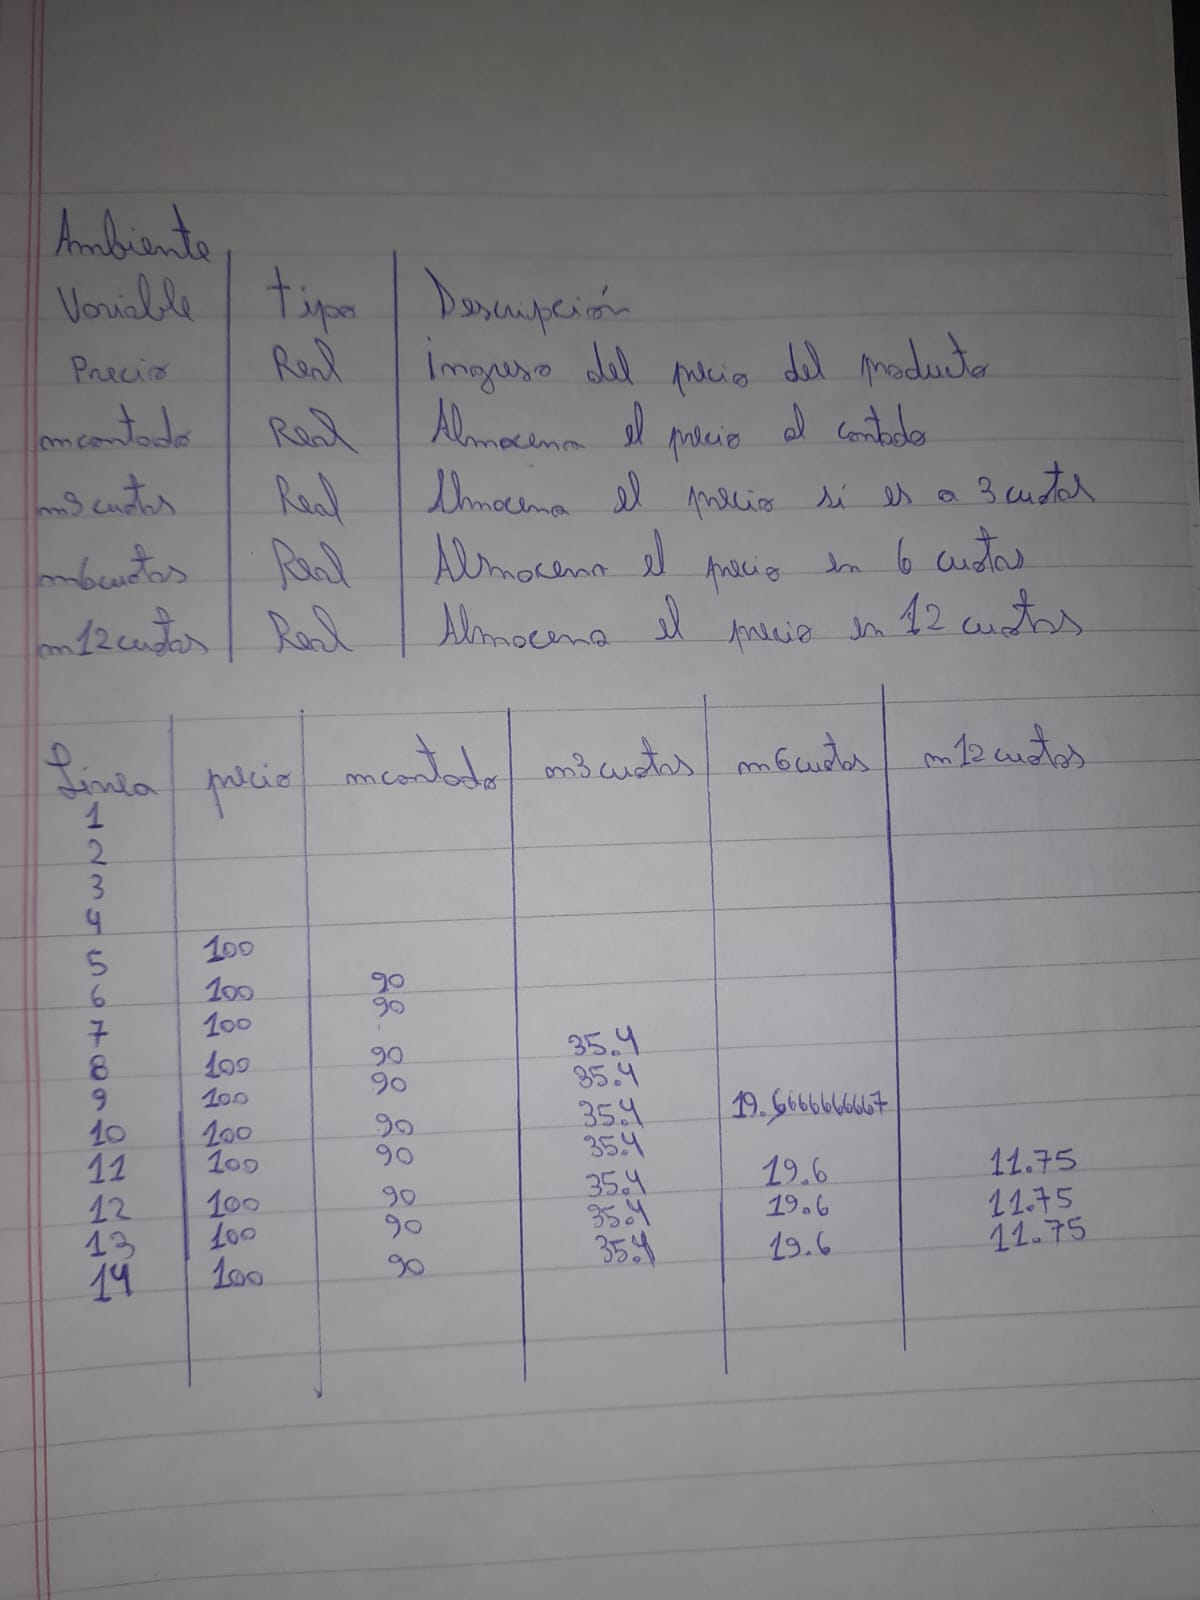 Ambiente
Variable tipo Descripción
Precio Real ingreso del precio del producto
mcontado Real Almacena el precio al contado
m3cuotas Real Almacena el precio si es a 3 cuotas
m6cuotas Real Almacena el precio en 6 cuotas
m12cuotas Real Almacena el precio en 12 cuotas
Linea precio mcontado m3cuotas m6cuotas m12cuotas
1
2
3
4
5 100
6 100 90
7 100 90
8 100 90 35.4
9 100 90 35.4
10 100 90 35.4 19.6666666667
11 100 90 35.4
12 100 90 35.4 19.6 11.75
13 100 90 35.4 19.6 11.75
14 100 90 35.4 19.6 11.75